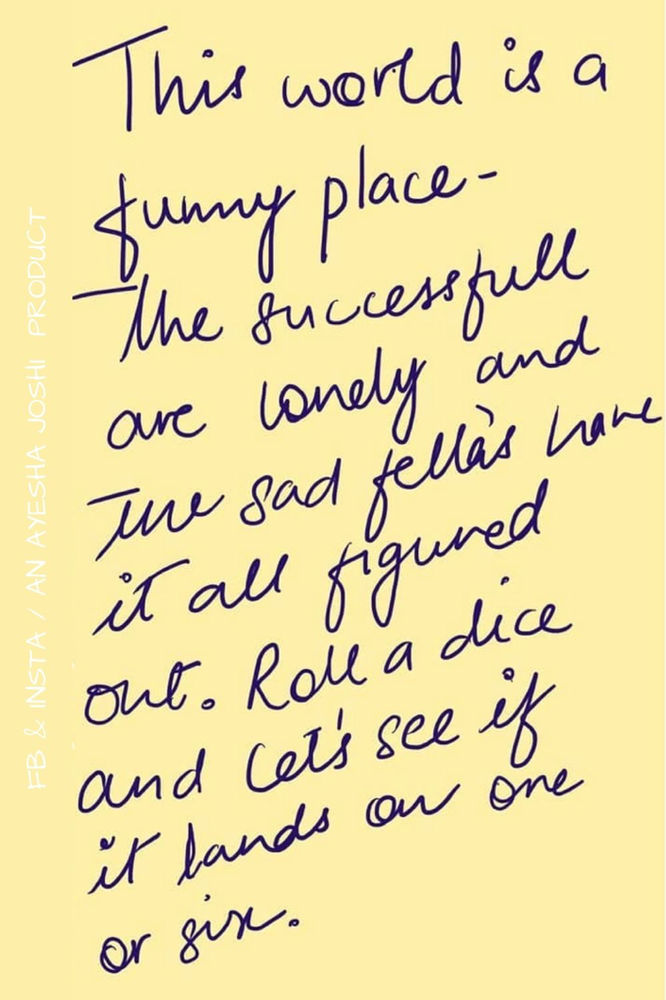 This world is a
funny place-
The successfull
are lonely and
The sad fella's have
it all figured
out. Roll a dice
and Let's see if
it lands on one
or six.
FB & INSTA / AN AYESHA JOSHI PRODUCT